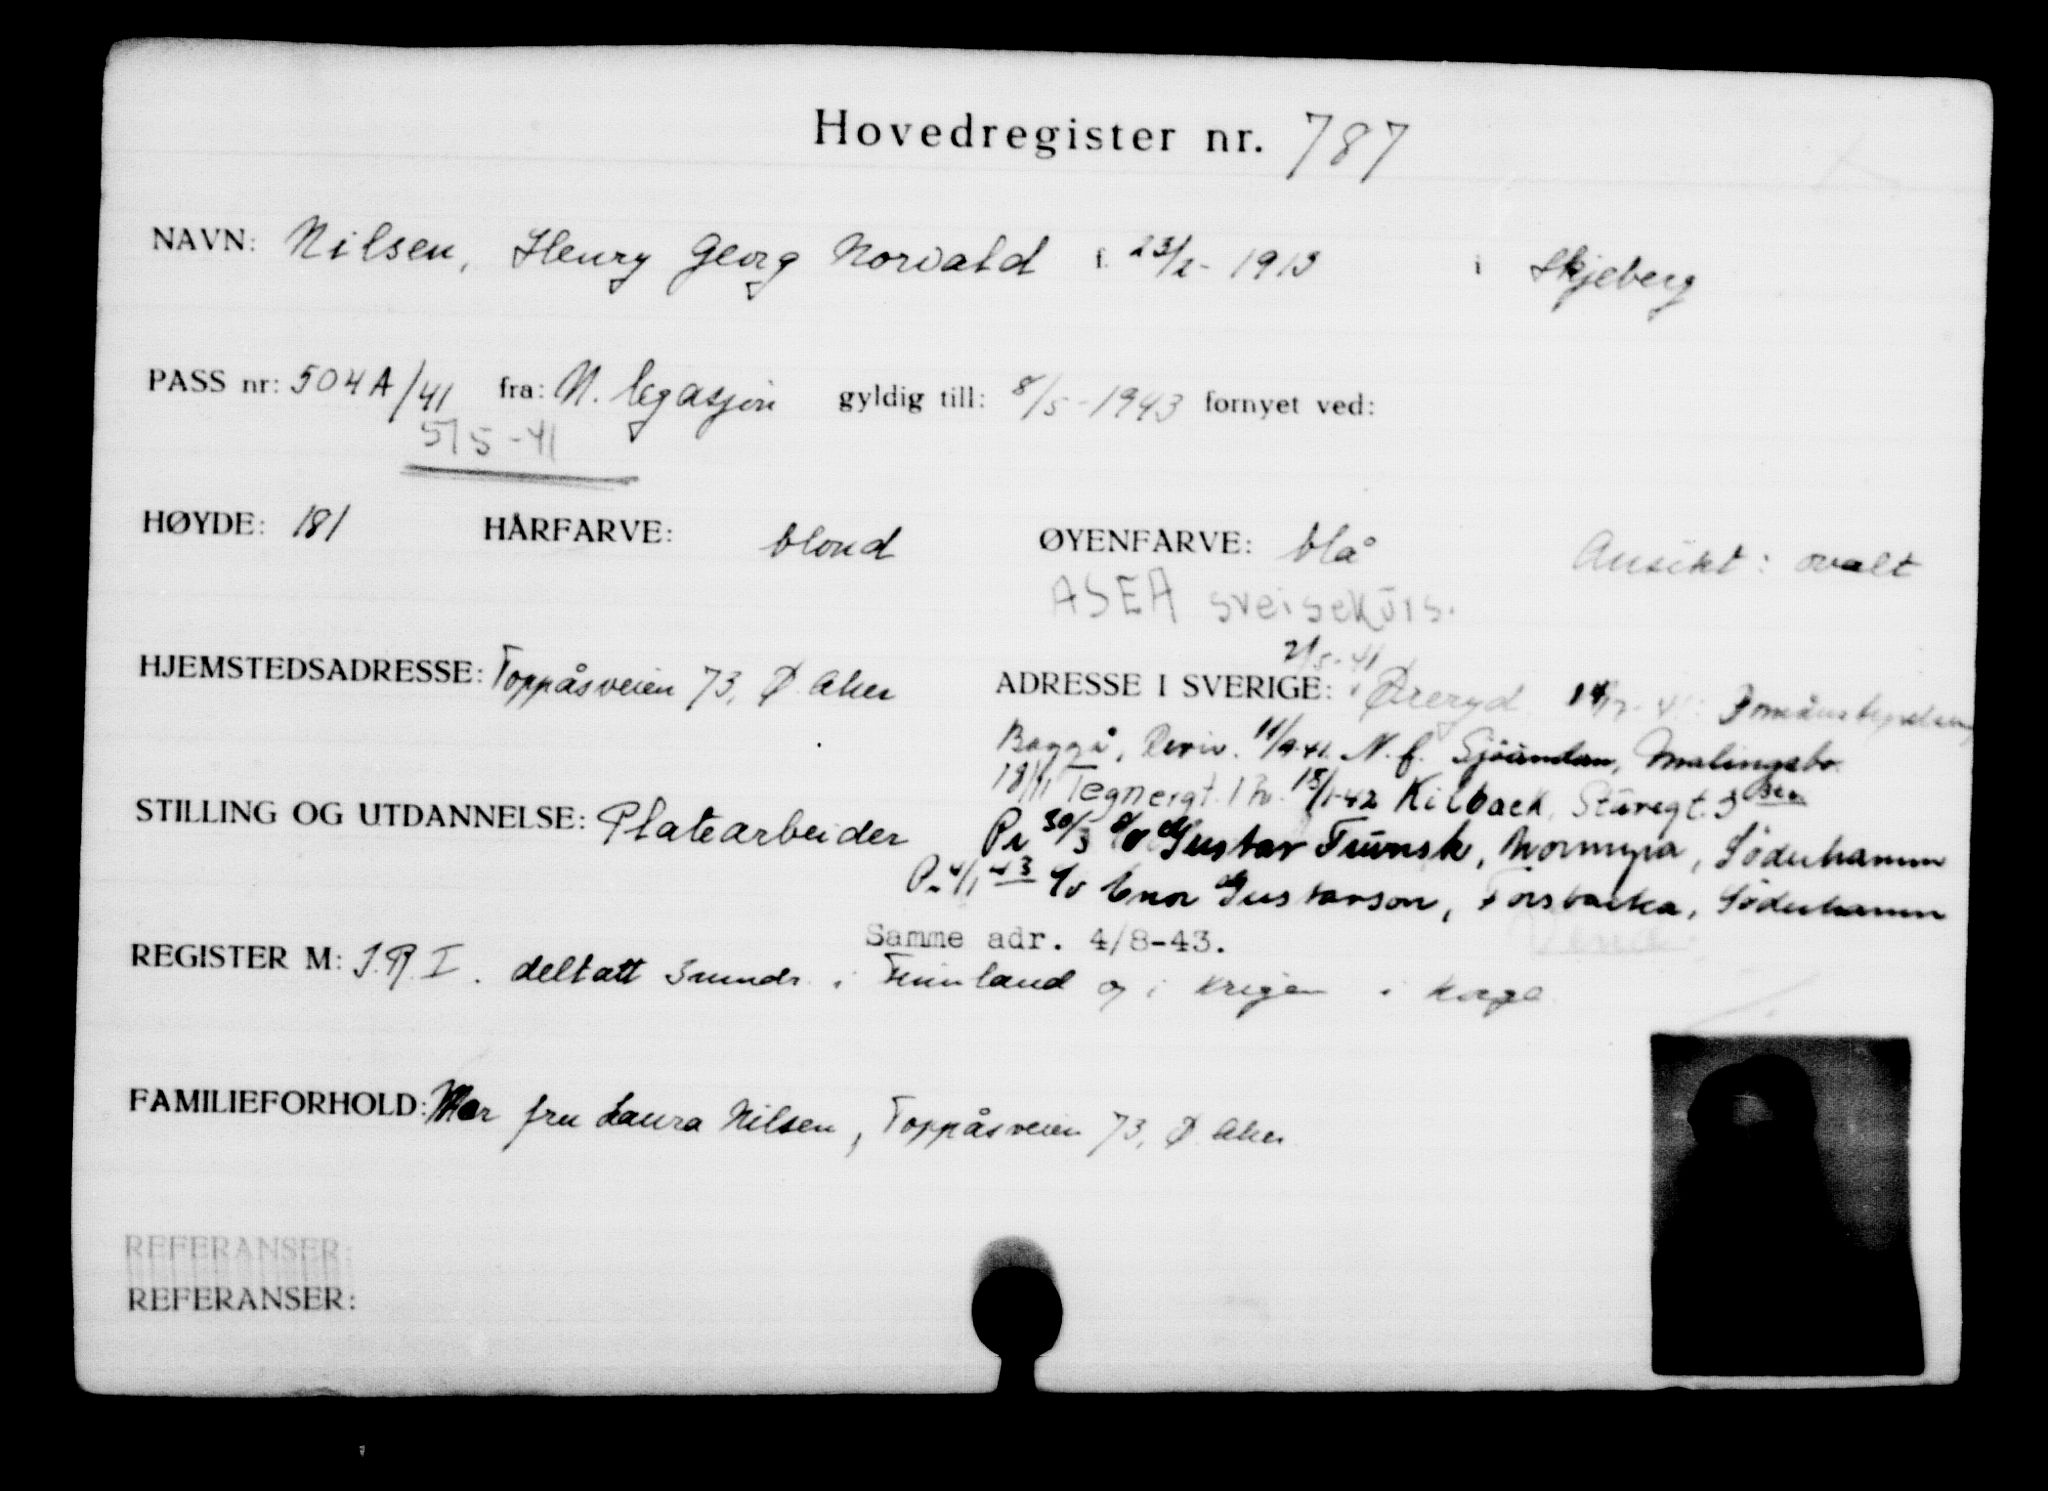 Hovedregister nr. 787
NAVN: Nilsen, Henry Georg Norvald f. 23/2-1913 i Skjeberg
PASS nr: 504A/41 fra: N. legasjon gyldig till: 8/5-1943 fornyet ved:
5/5-41
HØYDE: 181 HÅRFARVE: blond ØYENFARVE: blå Ansikt: ovalt
ASEA sveisekurs.
2/5-41
HJEMSTEDSADRESSE: Toppåsveien 73, Ø. Aker ADRESSE I SVERIGE: Øreryd
Baggå, 11/9-41. N. f. Sjöändan, Malingsbo.
18/11 Tegnergt. 15/1-42 Kilbaek, Sturegt. 3
STILLING OG UTDANNELSE: Platearbeider Pr 30/3 c/o Gustav Frunsk, Normyra, Söderhamn
Pr 4/1 43 c/o Einar Gustavson, Forsbacka, Söderhamn
Samme adr. 4/8-43.
REGISTER M: I.R. I. deltatt 3 mndr. i Finnland og i krigen i Norge
FAMILIEFORHOLD: Mor fru Laura Nilsen, Toppåsveien 73, Ø. Aker
REFERANSER:
REFERANSER: